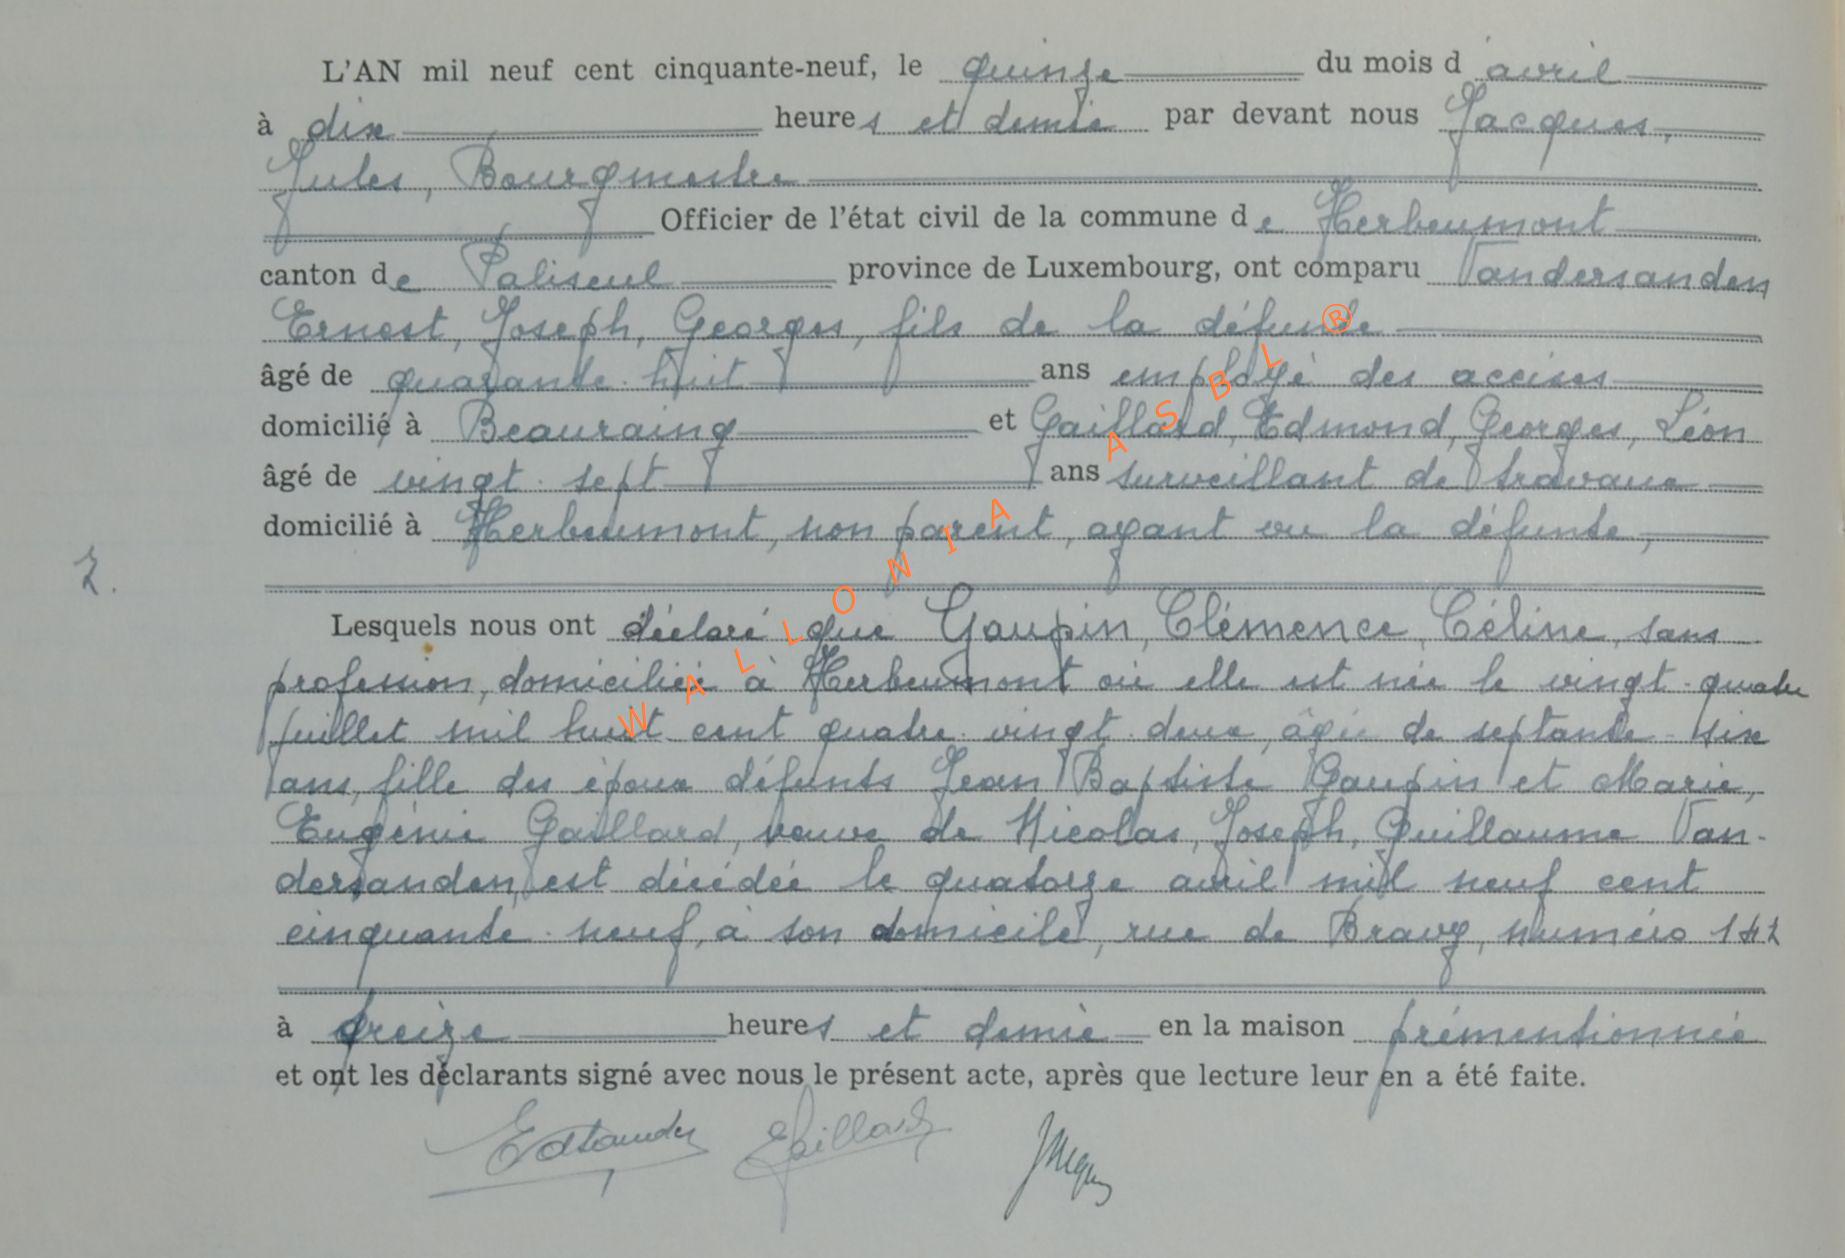 L'AN mil neuf cent cinquante-neuf, le quinze du mois d avril
à dix heures et demie par devant nous Jacques,
Jules, Bourgmestre
Officier de l'état civil de la commune de Herbeumont
canton de Paliseul province de Luxembourg, ont comparu Vandersanden
Ernest, Joseph, Georges, fils de la défunte
âgé de quarante-huit ans employé des accises
domicilié à Beauraing et Gaillard, Edmond, Georges, Léon
âgé de vingt-sept ans surveillant de travaux
domicilié à Herbeumont, non parent, ayant vu la défunte,
2.
Lesquels nous ont déclaré que Gaupin, Clémence, Céline, sans
profession, domiciliée à Herbeumont où elle est née le vingt-quatre
juillet mil huit cent quatre-vingt-deux, âgée de septante-six
ans, fille des époux défunts Jean Baptiste Gaupin et Marie,
Eugénie Gaillard, veuve de Nicolas, Joseph, Guillaume Van-
dersanden, est décédée le quatorze avril mil neuf cent
cinquante-neuf, à son domicile, rue de Bravy, numéro 142
à treize heures et demie en la maison prémentionnée
et ont les déclarants signé avec nous le présent acte, après que lecture leur en a été faite.
Gaillard Jacques
WALLONIA ASBL ®